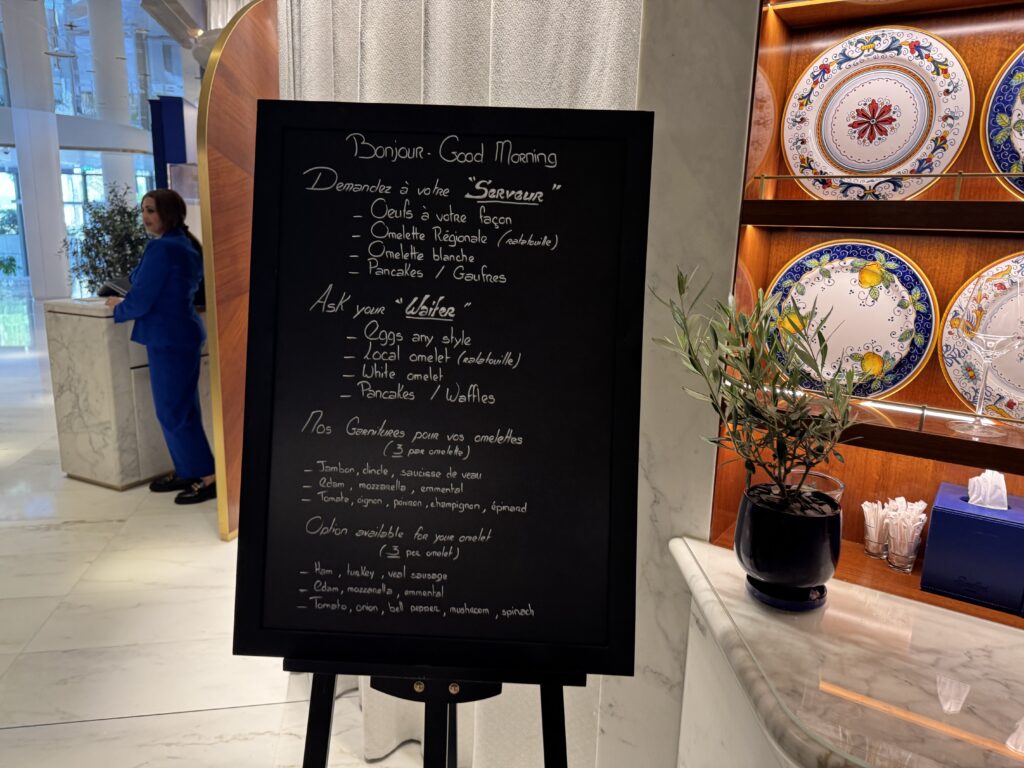 Bonjour - Good Morning
Demandez à votre "Serveur"
- Oeufs à votre façon
- Omelette Régionale (ratatouille)
- Omelette blanche
- Pancakes / Gaufres
Ask your "Waiter"
- Eggs any style
- Local omelet (ratatouille)
- White omelet
- Pancakes / Waffles
Nos Garnitures pour vos omelettes
(3 per omelette)
- Jambon, dinde, saucisse de veau
- Edam, mozzarella, emmental
- Tomate, oignon, poivron, champignon, épinard
Option available for your omelet
(3 per omelet)
- Ham, turkey, veal sausage
- Edam, mozzarella, emmental
- Tomato, onion, bell pepper, mushroom, spinach